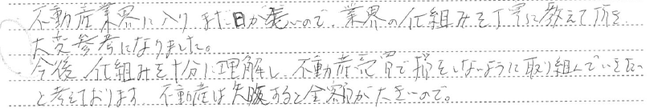 不動産業界に入り、まだ日が浅いので、業界の仕組みを丁寧に教えて頂き
大変参考になりました。
今後、仕組みを十分に理解し、不動産売買で損をしないように取り組んでいきたい
と考えております。不動産は失敗すると金額が大きいので。